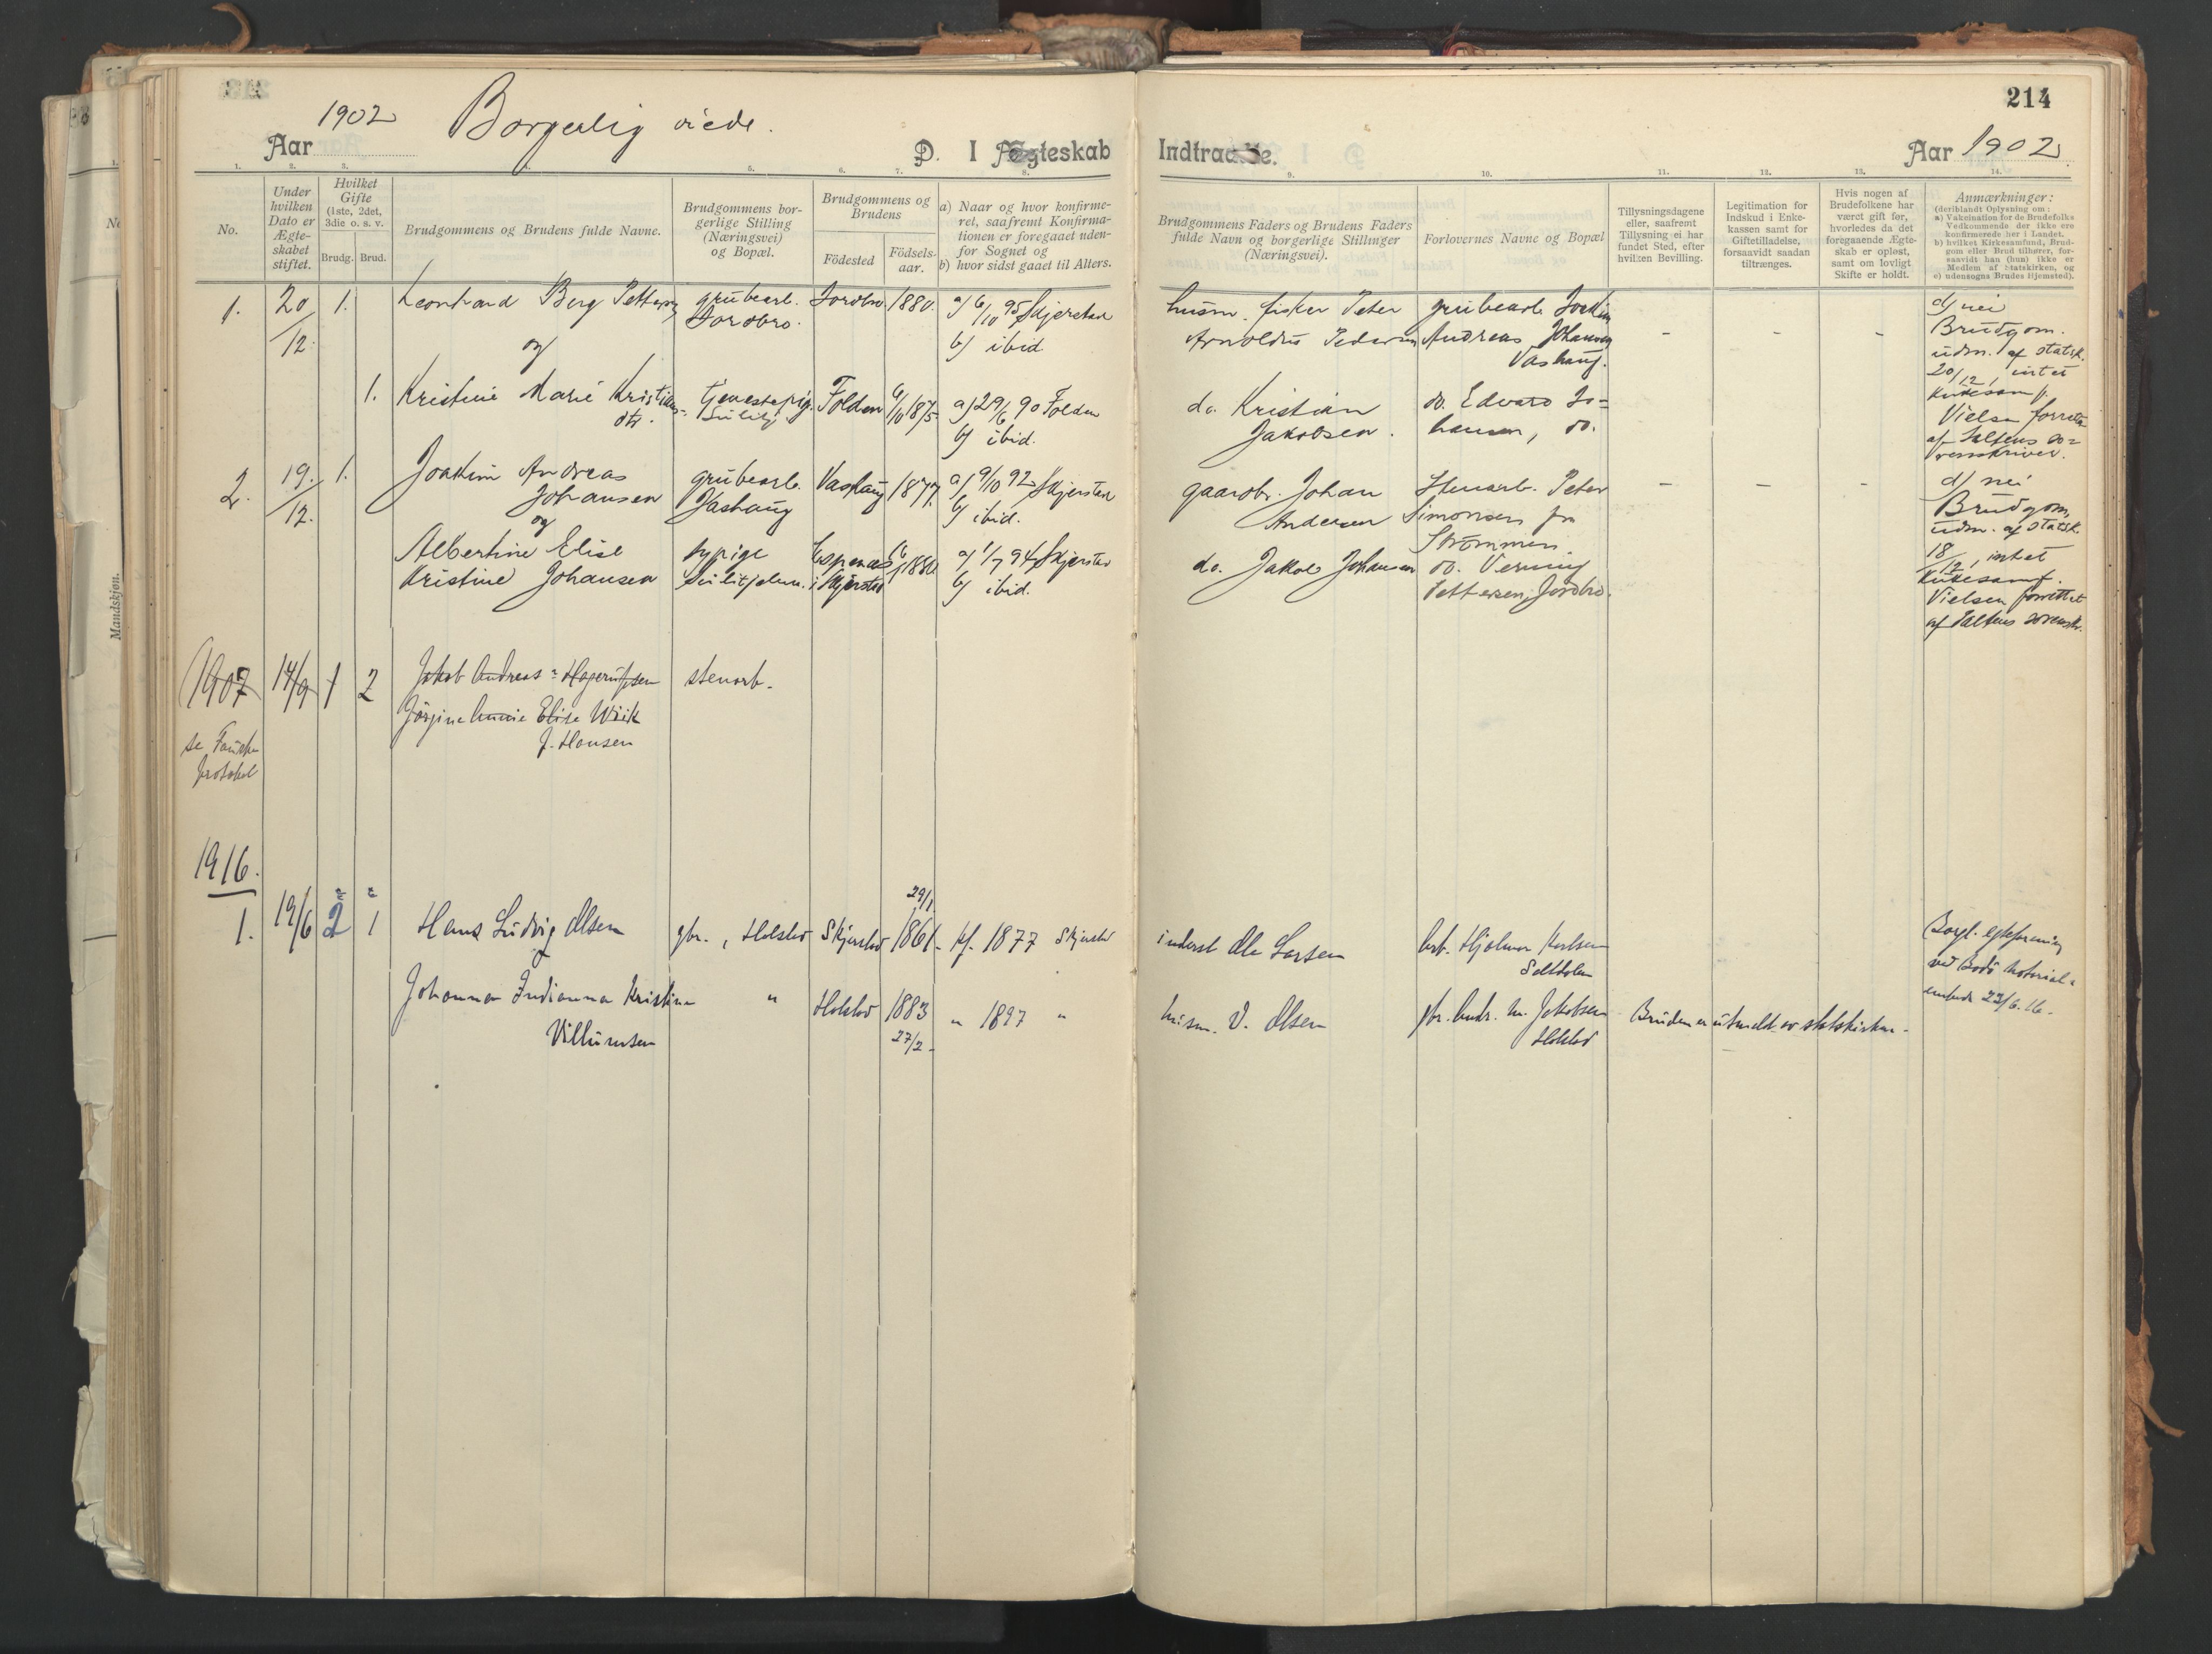 1902 Borgerlig viede.
Aar
D. I Ægteskab
Indtraadte.
214
Aar 1902
1. 2. 3. 5. 6. 7. 8. 9. 10. 11. 12. 13. 14.
No.
Under
hvilken
Dato er
Ægte-
skabet
stiftet.
Hvilket
Gifte
(1ste, 2det,
3die o. s. v.
Brudg. Brud.
Brudgommens og Brudens fulde Navne.
Brudgommens bor-
gerlige Stilling
(Næringsvei)
og Bopæl.
Brudgommens og
Brudens
Födested
Födsels-
aar.
a) Naar og hvor konfirme-
ret, saafremt Konfirma-
tionen er foregaaet uden-
for Sognet og
b) hvor sidst gaaet til Alters.
Brudgommens Faders og Brudens Faders
fulde Navn og borgerlige Stillinger
(Næringsvei).
Forlovernes Navne og Bopæl
Tillysningsdagene
eller, saafremt
Tillysning ei har
fundet Sted, efter
hvilken Bevilling.
Legitimation for
Indskud i Enke-
kassen samt for
Giftetilladelse,
forsaavidt saadan
tiltrænges.
Hvis nogen af
Brudefolkene har
været gift før,
hvorledes da det
foregaaende Ægte-
skab er opløst,
samt om lovligt
Skifte er holdt.
Anmærkninger:
(deriblandt Oplysning om:
a) Vakcination for de Brudefolks
Vedkommende der ikke ere
konfirmerede her i Landet,
b) hvilket Kirkesamfund, Brud-
gom eller Brud tilhører, for-
saavidt han (hun) ikke er
Medlem af Statskirken, og
c) udensogns Brudes Hjemsted).
1. 20/12. 1.
Leonhard Berg Pettersen
og
grubearb.
Jordbro.
Jordbro 1880.
a) 6/10 95 Skjerstad
b) ibid
husm. fisker Peter
Arnoldus Pedersen
grubearb. Joakim
Andreas Johansen
Vashaug.
- - -
d) nei
Brudgom.
udm. af statsk.
20/12, intet
Kirkesamf.
Vielsen forrettet
af Saltens so-
renskriver.
1.
Kristine Marie Kristians-
dtr.
tjenestepig.
Sulitj.
Folden 6/10 1875
a) 29/6 90 Folden
b) ibid.
do. Kristian
Jakobsen.
do. Edvard Jo-
hansen, do.
2. 19./12. 1.
Joakim Andreas
Johansen
og
grubearb.
Vashaug
Vashaug 1877.
a) 9/10 92 Skjerstad
b) ibid.
gaardbr. Johan
Andersen
Stenarb. Peter
Simonsen fra
Strömmen.
- - -
d) nei
Brudgom,
udm. af statsk.
18/12, intet
Kirkesamf.
Vielsen forrettet
af Saltens sorensk.
Albertine Elise
Kristine Johansen
sypige
Sulitjelma.
Espenes
i Skjerstad
1880
a) 1/7 94 Skjerstad
b) ibid.
do. Jakob Johansen
do. Verning
Pettersen, Jordbro.
1907 14/9 1 2
Jakob Andreas Hagerupsen
stenarb.
Jörgine Annie Elise Wiik
f. Hansen
se Fauske
protokol
1916.
1. 19/6 2 1
Hans Ludvig Olsen
gbr., Holstad
Skjerstad
29/1
1861
kf. 1877 Skjerstad
inderst Ole Larsen
arb. Hjalmar Karlsen
Saltdalen
Borgl. egteforening
ved Bodö Notorial-
embede 22/6. 16.
Johanna Indianna Kristine
Villumsen
"
Holstad
1883
27/2
" 1897 "
husm. V. Olsen
gbr. Andr. M. Jakobsen
Holstad
Bruden er utmeldt av statskirken.
Mandskjøn.